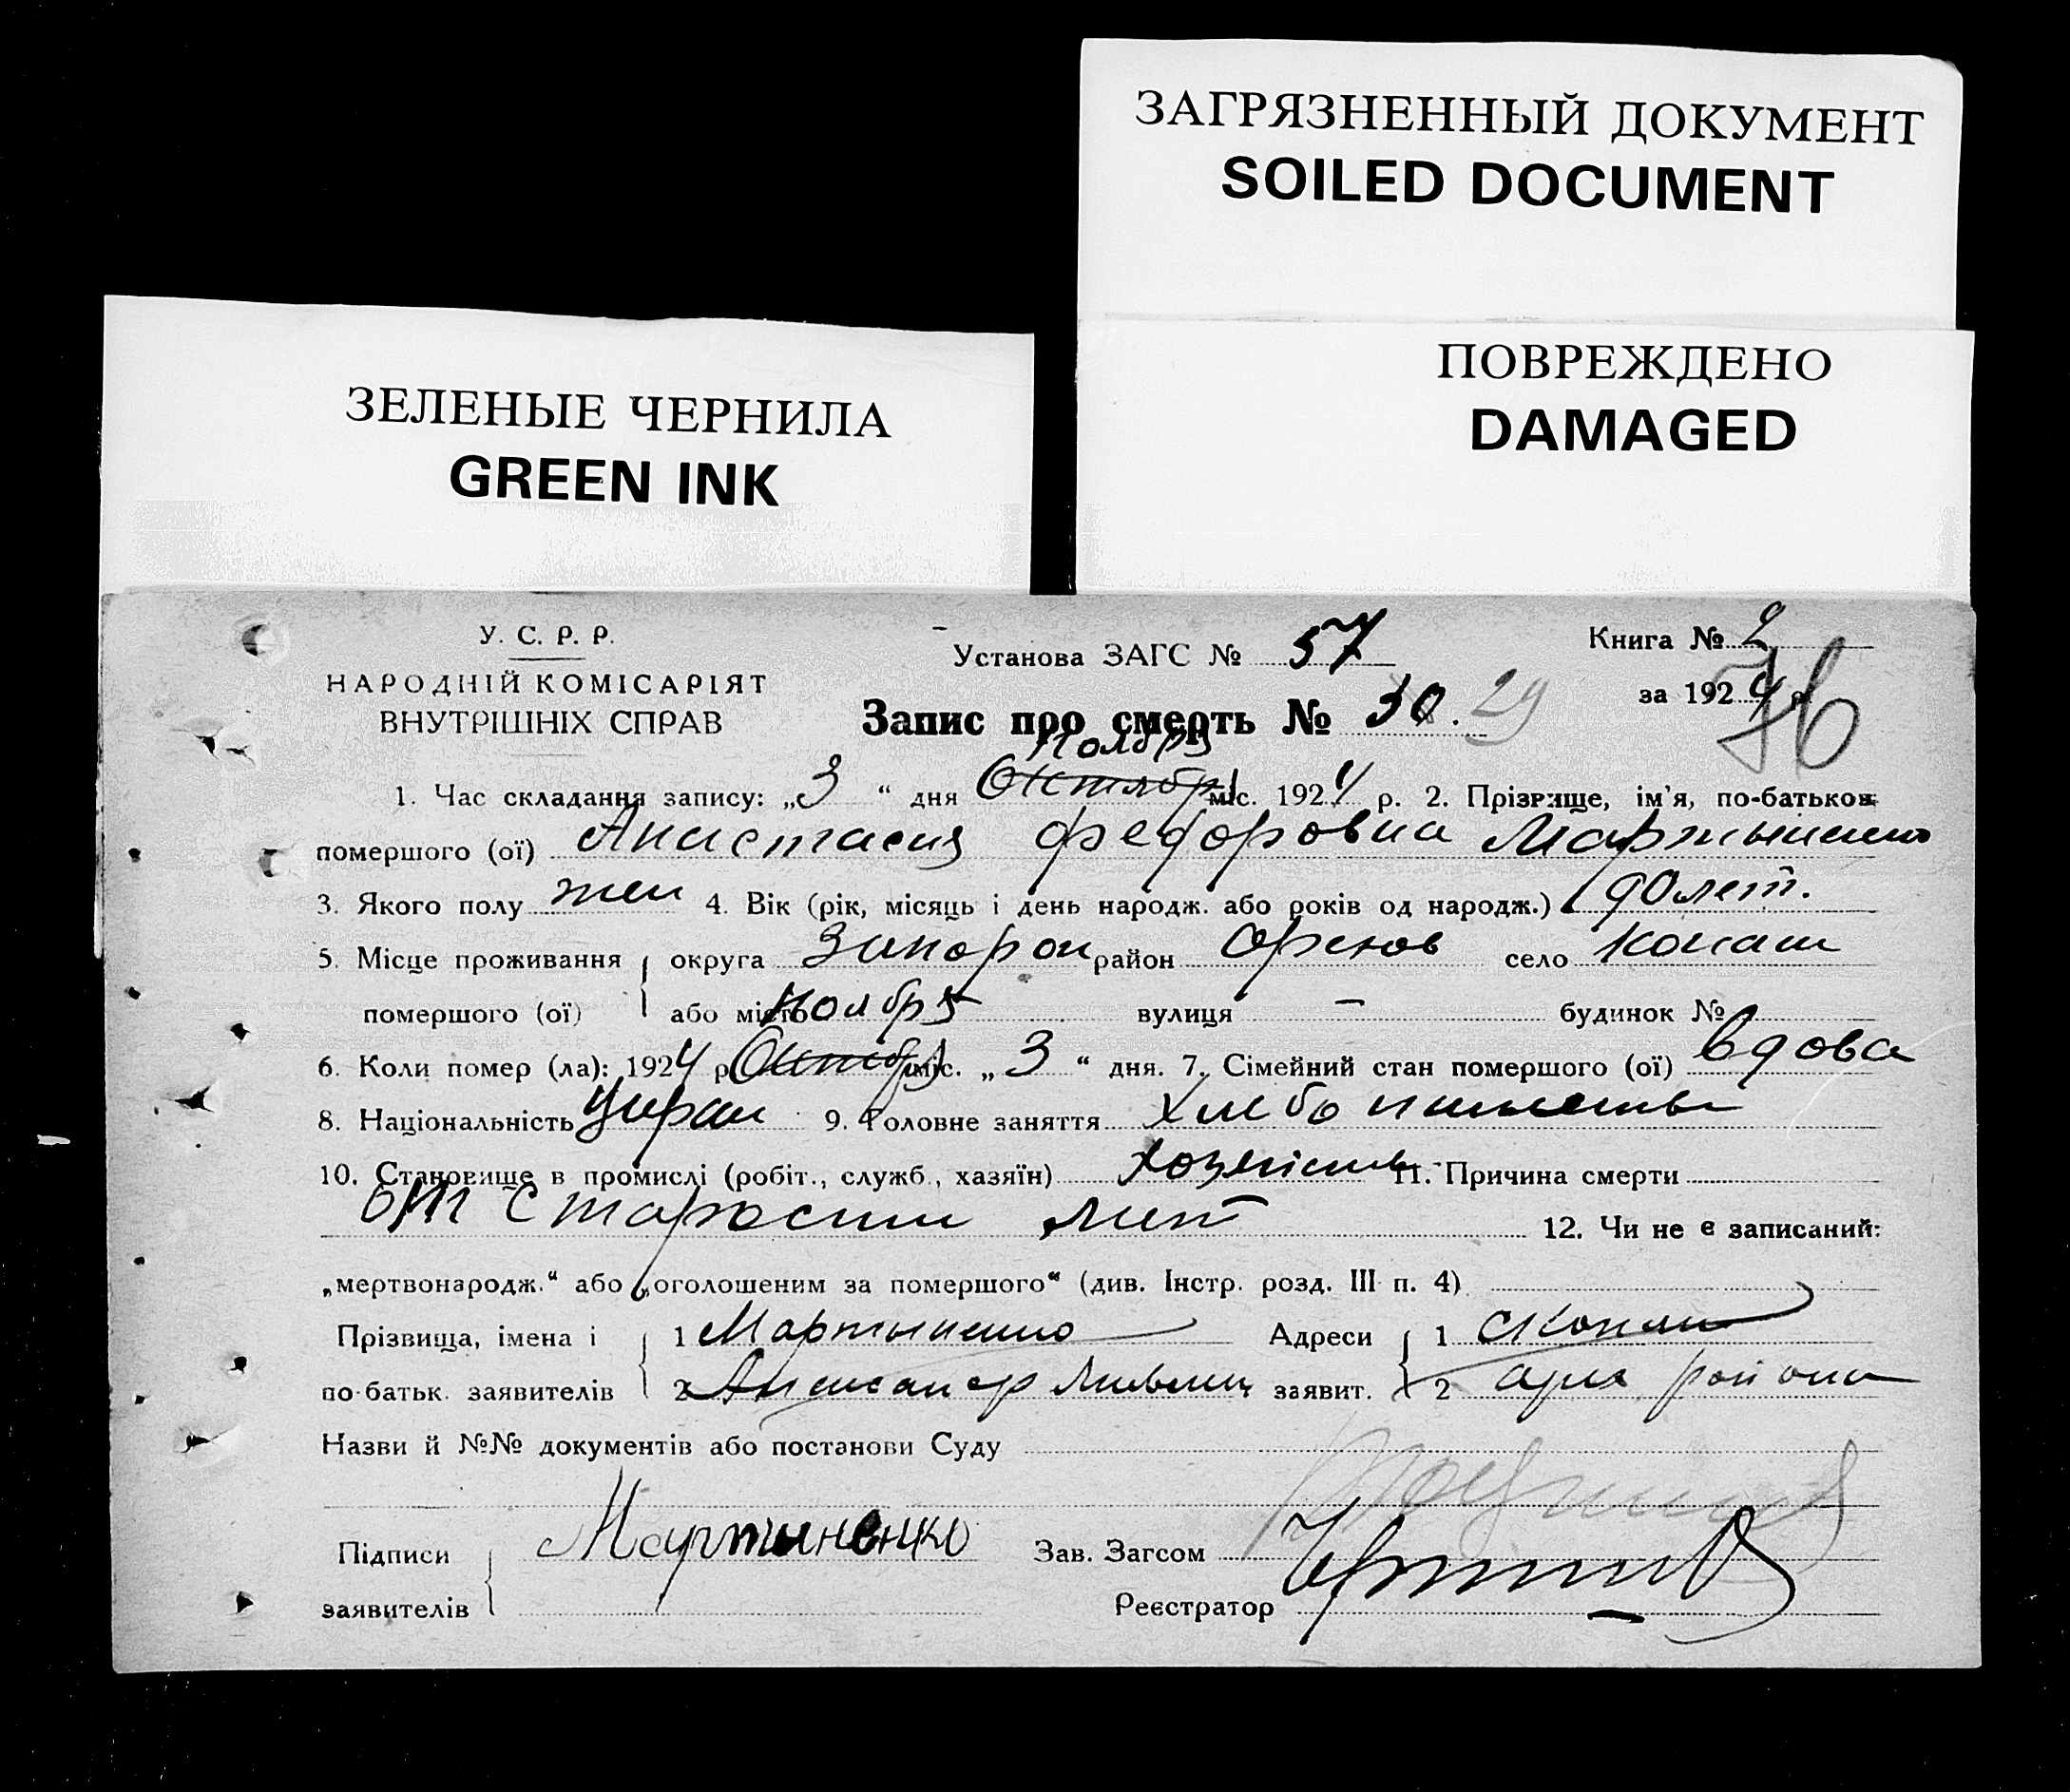 ЗАГРЯЗНЕННЫЙ ДОКУМЕНТ
SOILED DOCUMENT
ПОВРЕЖДЕНО
DAMAGED
ЗЕЛЕНЫЕ ЧЕРНИЛА
GREEN INK
У. С. Р. Р.
НАРОДНІЙ КОМІСАРІЯТ
ВНУТРІШНІХ СПРАВ
Установа ЗАГС № 57
Книга № 2
за 1924 р.
76
Запис про смерть № 30. 29
Ноября
1. Час складання запису: „3“ дня Октябр міс. 1924 р. 2. Прізвище, ім'я, по-батькові
помершого (ої) Анастасия Федоровна Мартыненко
3. Якого полу жен 4. Вік (рік, місяць і день народж. або років од народж.) 90 лет.
5. Місце проживання округа Запорож район Орехов село Копани
помершого (ої) або місто вулиця — будинок №
Ноября
6. Коли помер (ла): 1924 р. Октябр міс. „3“ дня. 7. Сімейний стан помершого (ої) вдова
8. Національність Украи 9. Головне заняття Хлебопашество
10. Становище в промислі (робіт., служб., хазяїн) 11. Причина смерти
от старости лет 12. Чи не є записаний:
„мертвонародж.“ або „оголошеним за помершого“ (див. Інстр. розд. III п. 4)
Прізвища, імена і 1 Мартыненко Адреси 1 с Копани
по-батьк. заявителів 2 Александр заявит. 2 Орех. района
Назви й №№ документів або постанови Суду
Підписи Мартиненко Зав. Загсом
заявителів Реєстратор